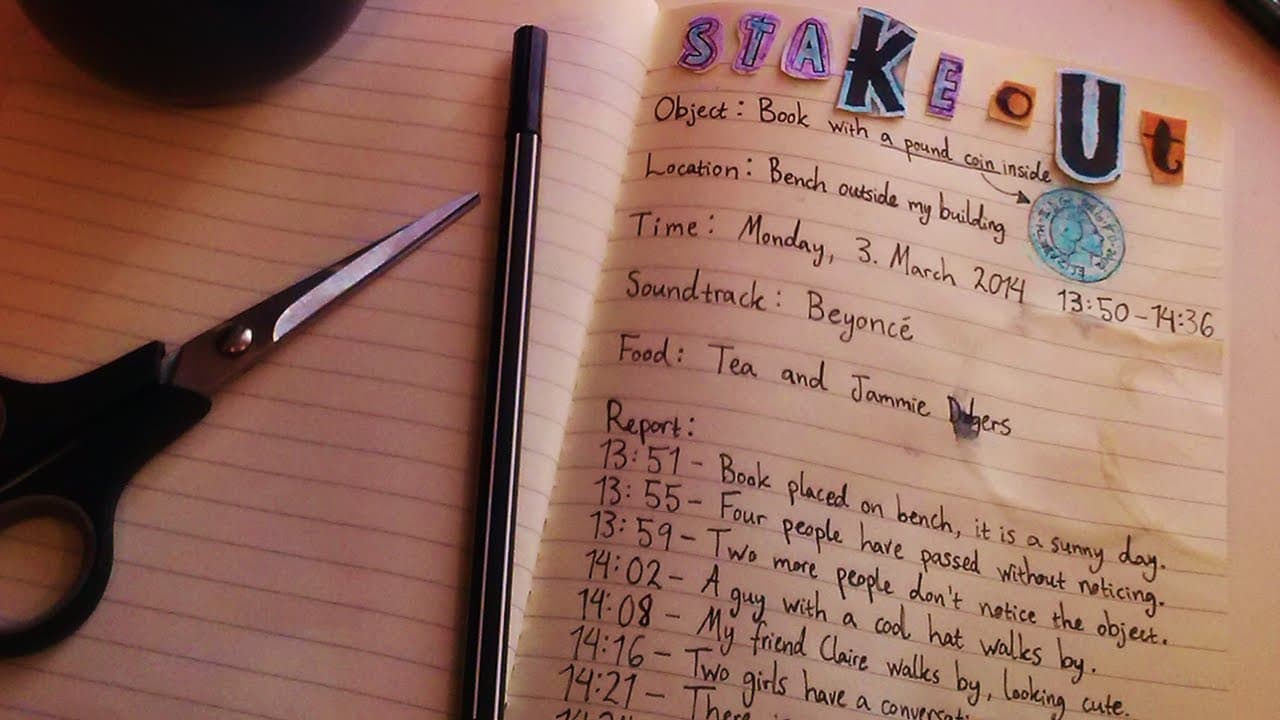 STAKE-OUt
Object: Book with a pound coin inside
Location: Bench outside my building
Time: Monday, 3. March 2014 13:50-14:36
Soundtrack: Beyoncé
Food: Tea and Jammie
Report:
13:51 - Book placed on bench, it is a sunny day.
13:55 - Four people have passed without noticing.
13:59 - Two more people don't notice the object.
14:02 - A guy with a cool hat walks by.
14:08 - My friend Claire walks by, looking cute.
14:16 - Two girls have a
14:21 - There